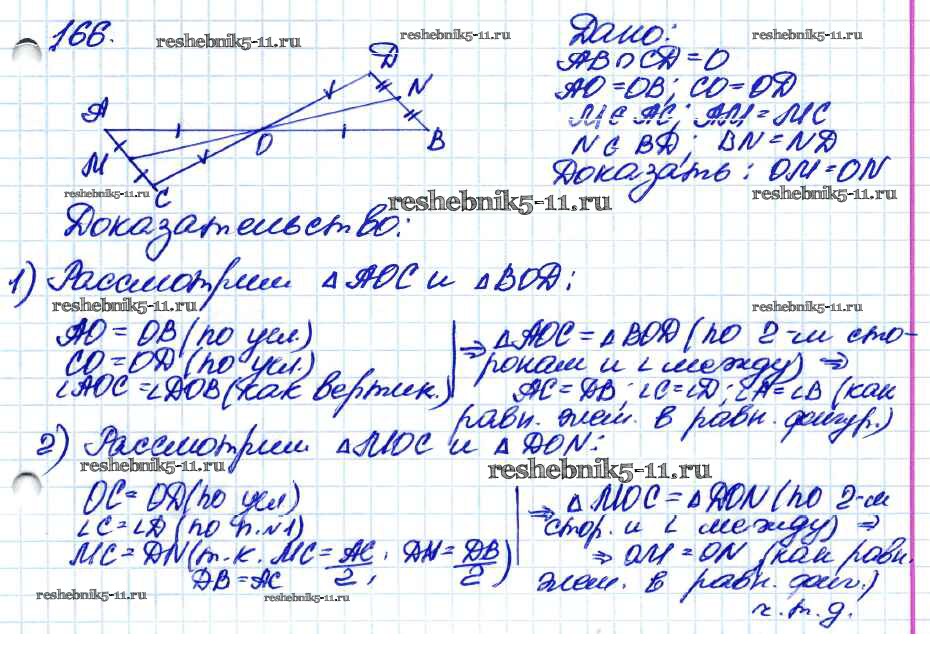 166.
reshebnik5-11.ru
reshebnik5-11.ru
reshebnik5-11.ru
Дано:
AB∩CD=O
AO=OB; CO=OD
M∈AC; AM=MC
N∈BD; BN=ND
Доказать: OM=ON
D
N
A
O
B
M
C
reshebnik5-11.ru
reshebnik5-11.ru
reshebnik5-11.ru
Доказательство:
1) Рассмотрим △AOC и △BOD:
reshebnik5-11.ru
reshebnik5-11.ru
AO=OB (по усл.)
CO=OD (по усл.)
∠AOC=∠DOB (как вертик.)
⇒ △AOC=△BOD (по 2-м сто-
ронам и ∠ между) ⇒
AC=DB; ∠C=∠D; ∠A=∠B (как
равн. элем. в равн. фигур.)
2) Рассмотрим △MOC и △DON:
reshebnik5-11.ru
reshebnik5-11.ru
OC=OD (по усл)
∠C=∠D (по п.№1)
MC=DN (т.к. MC=AC/2, DN=DB/2)
DB=AC
⇒ △MOC=△DON (по 2-м
стор. и ∠ между) ⇒
⇒ OM=ON (как равн.
элем. в равн. фиг.)
ч.т.д.
reshebnik5-11.ru
reshebnik5-11.ru